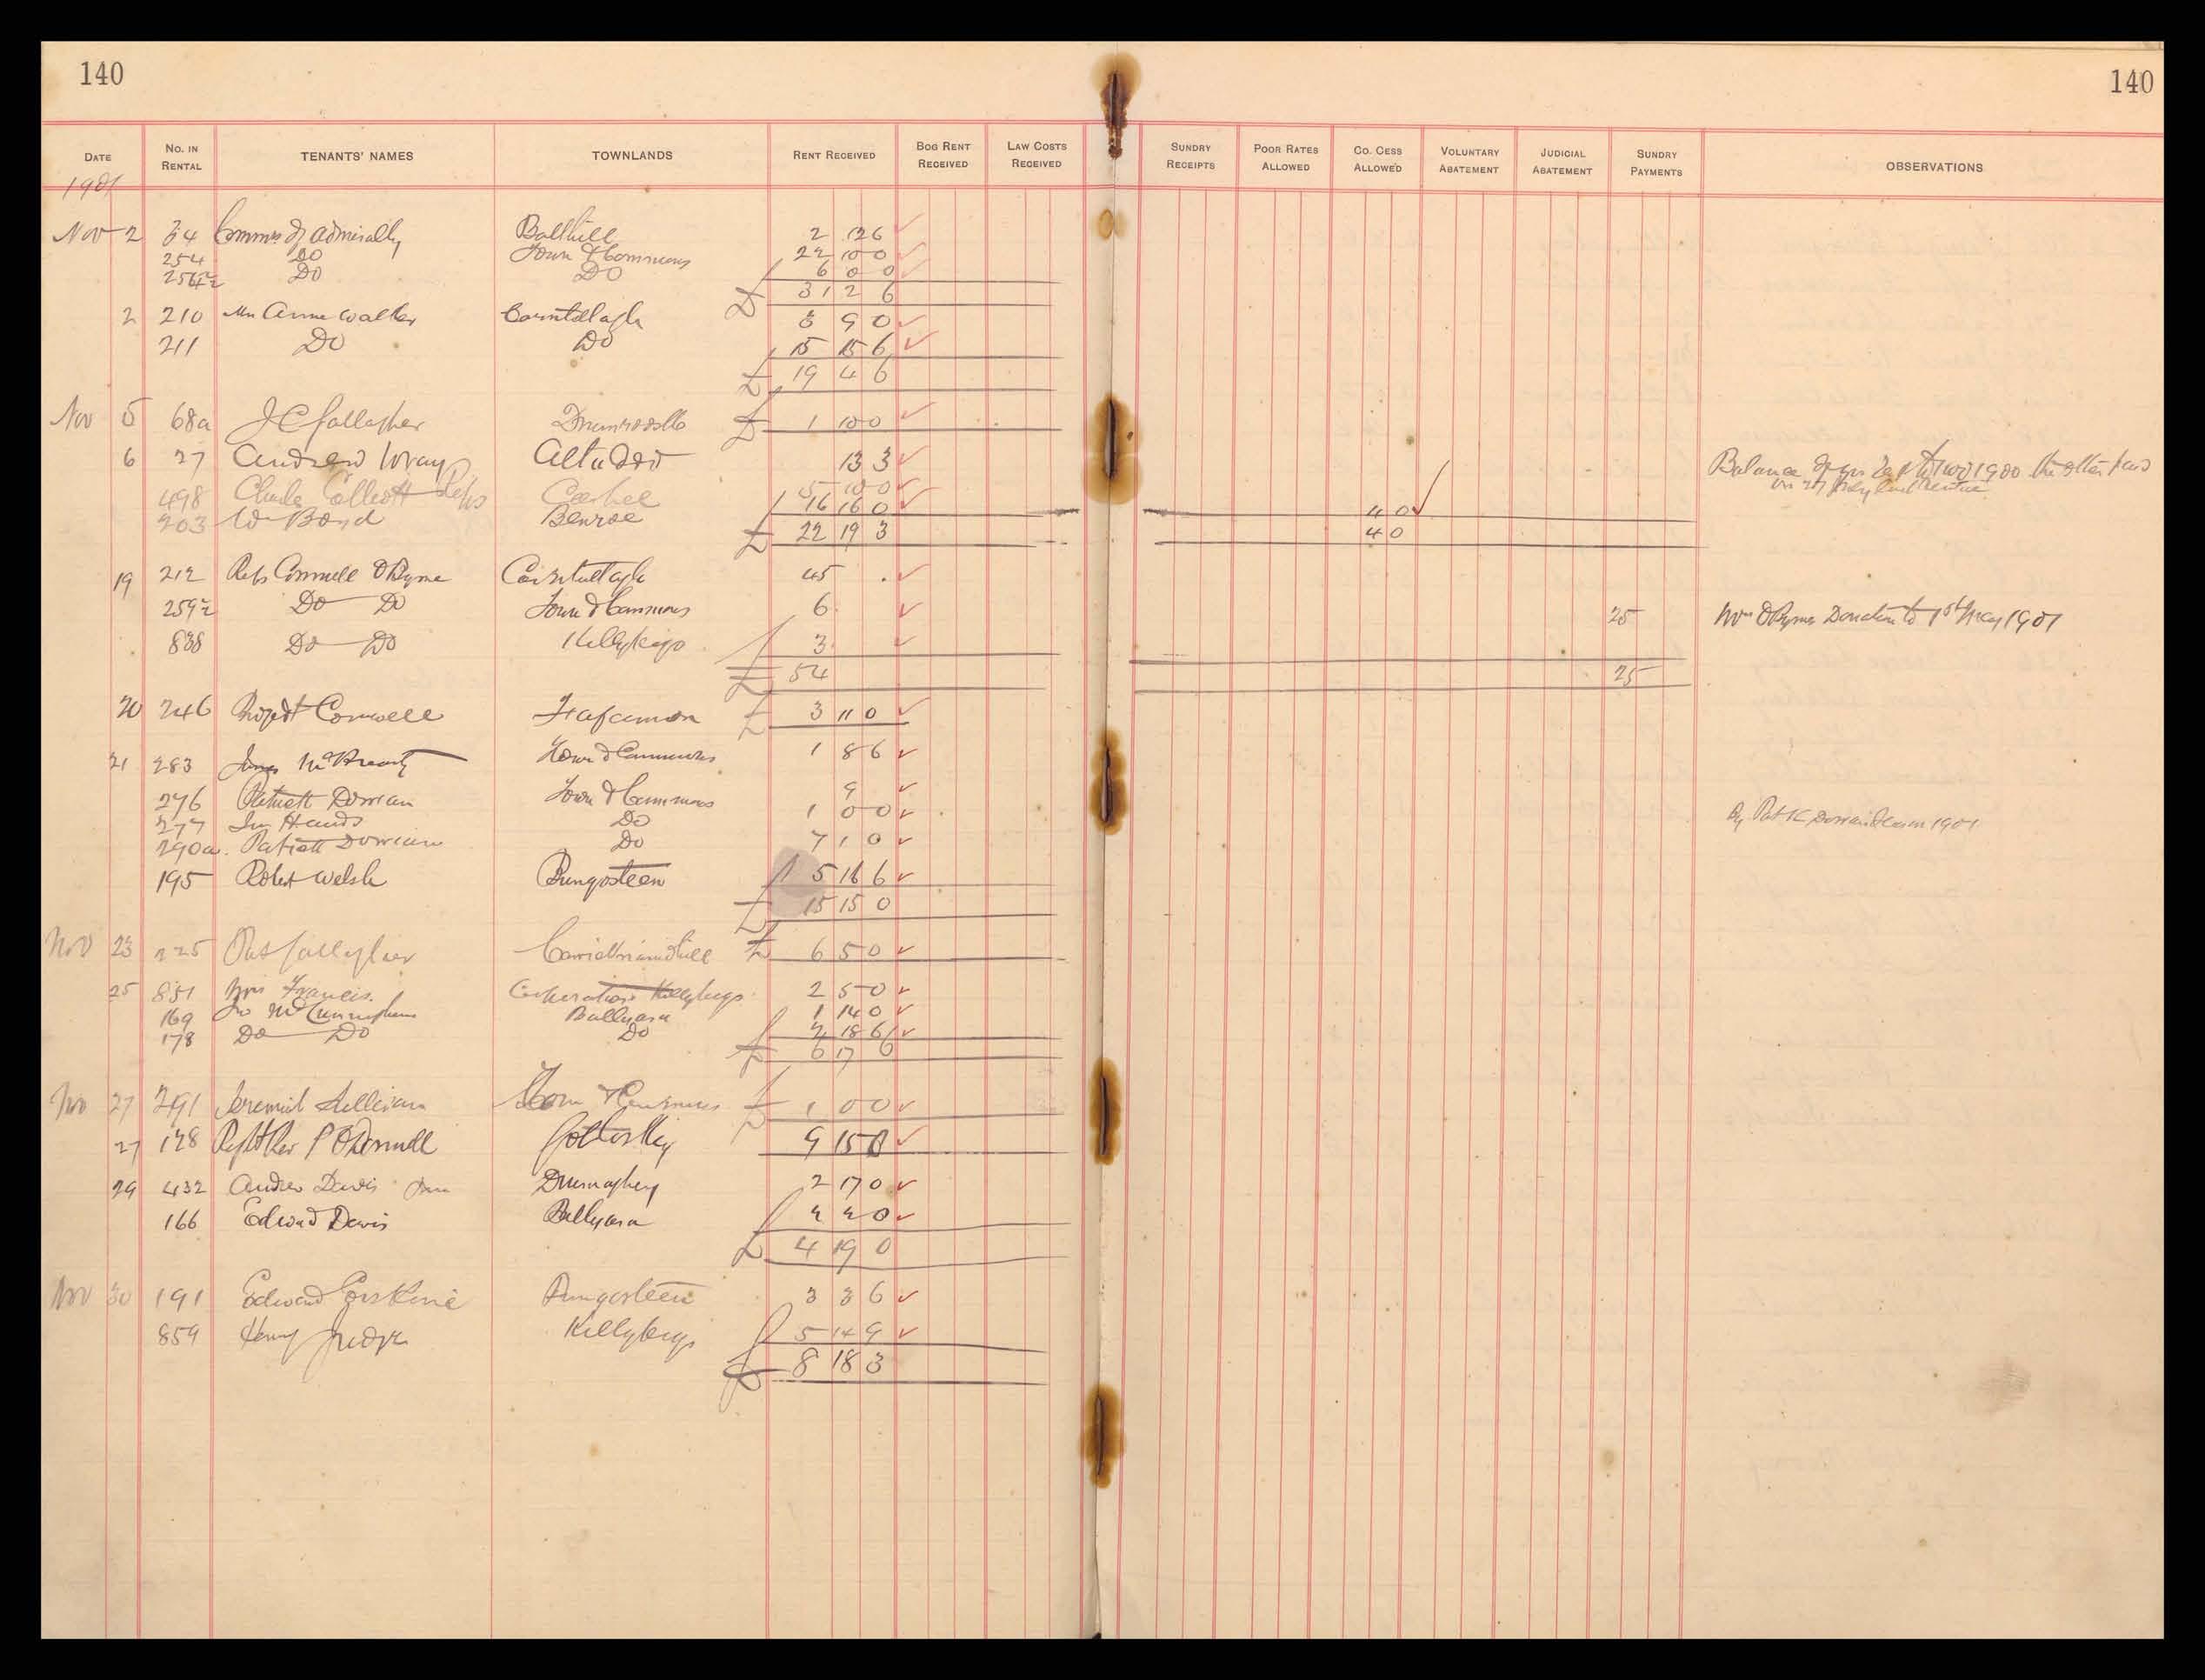 140 140
DATE No. IN RENTAL TENANTS' NAMES TOWNLANDS RENT RECEIVED BOG RENT RECEIVED LAW COSTS RECEIVED SUNDRY RECEIPTS POOR RATES ALLOWED CO. CESS ALLOWED VOLUNTARY ABATEMENT JUDICIAL ABATEMENT SUNDRY PAYMENTS OBSERVATIONS
1901
Nov 2 34 Commrs of Admiralty Ballhill 2 12 6
254 Do Town & Commons 22 10 0
Do Do 6 0 0
£ 31 2 6
2 210 Mrs Anne Walker Corntullagh 3 9 0
211 Do Do 15 15 6
£ 19 4 6
Nov 5 68a J C Gallagher £ 1 10 0
6 27 Andrew Wray 13 3 Balance of 1900
498 Charles Reps Cashel 5 10 0
203 Wm Boyd Benroe 16 16 0 4 0
£ 22 19 3 4 0
19 212 Reps Connell O'Byrne Corntullagh 45
259½ Do Do Town & Commons 6 25 Mrs O'Byrnes Donation to 1st May 1901
838 Do Do Killybegs 3
£ 54 25
20 246 Conwell £ 3 11 0
21 283 James Town & Commons 1 8 6
276 Patrick Dorrian Town & Commons 9
277 In Hands Do 1 0 0 By Patk Dorrian 1901
290a Patrick Dorrian Do 7 1 0
195 Robert Welsh Bungosteen 5 16 6
£ 15 15 0
Nov 23 225 Pat Gallagher £ 6 5 0
25 851 Mrs Francis Corporation Killybegs 2 5 0
169 Jno McCunningham Ballyara 1 14 0
178 Do Do Do 2 18 6
£ 6 17 6
Nov 27 291 Jeremiah Sullivan Town & Commons £ 1 0 0
27 128 P O'Donnell 9 15 0
29 432 Andrew Davis Drumaghey 2 17 0
166 Edward Davis Ballyara 2 2 0
£ 4 19 0
Nov 30 191 Edward Erskine Bungosteen 3 3 6
859 Henry Killybegs 5 14 9
£ 8 18 3